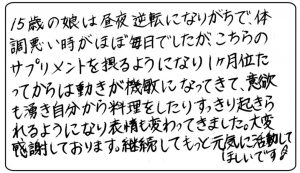 15歳の娘は昼夜逆転になりがちで、体
調悪い時がほぼ毎日でしたが、こちらの
サプリメントを摂るようになり1ヶ月位た
ってからは動きが機敏になってきて、意欲
も湧き自分から料理をしたりすっきり起きら
れるようになり表情も変わってきました。大変
感謝しております。継続してもっと元気に活動して
ほしいです♪